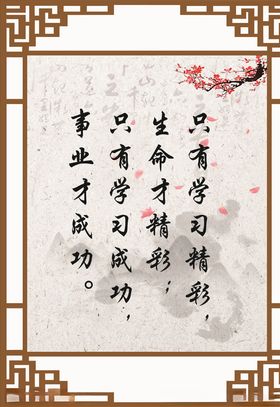 只有学习精彩，
生命才精彩；
只有学习成功，
事业才成功。